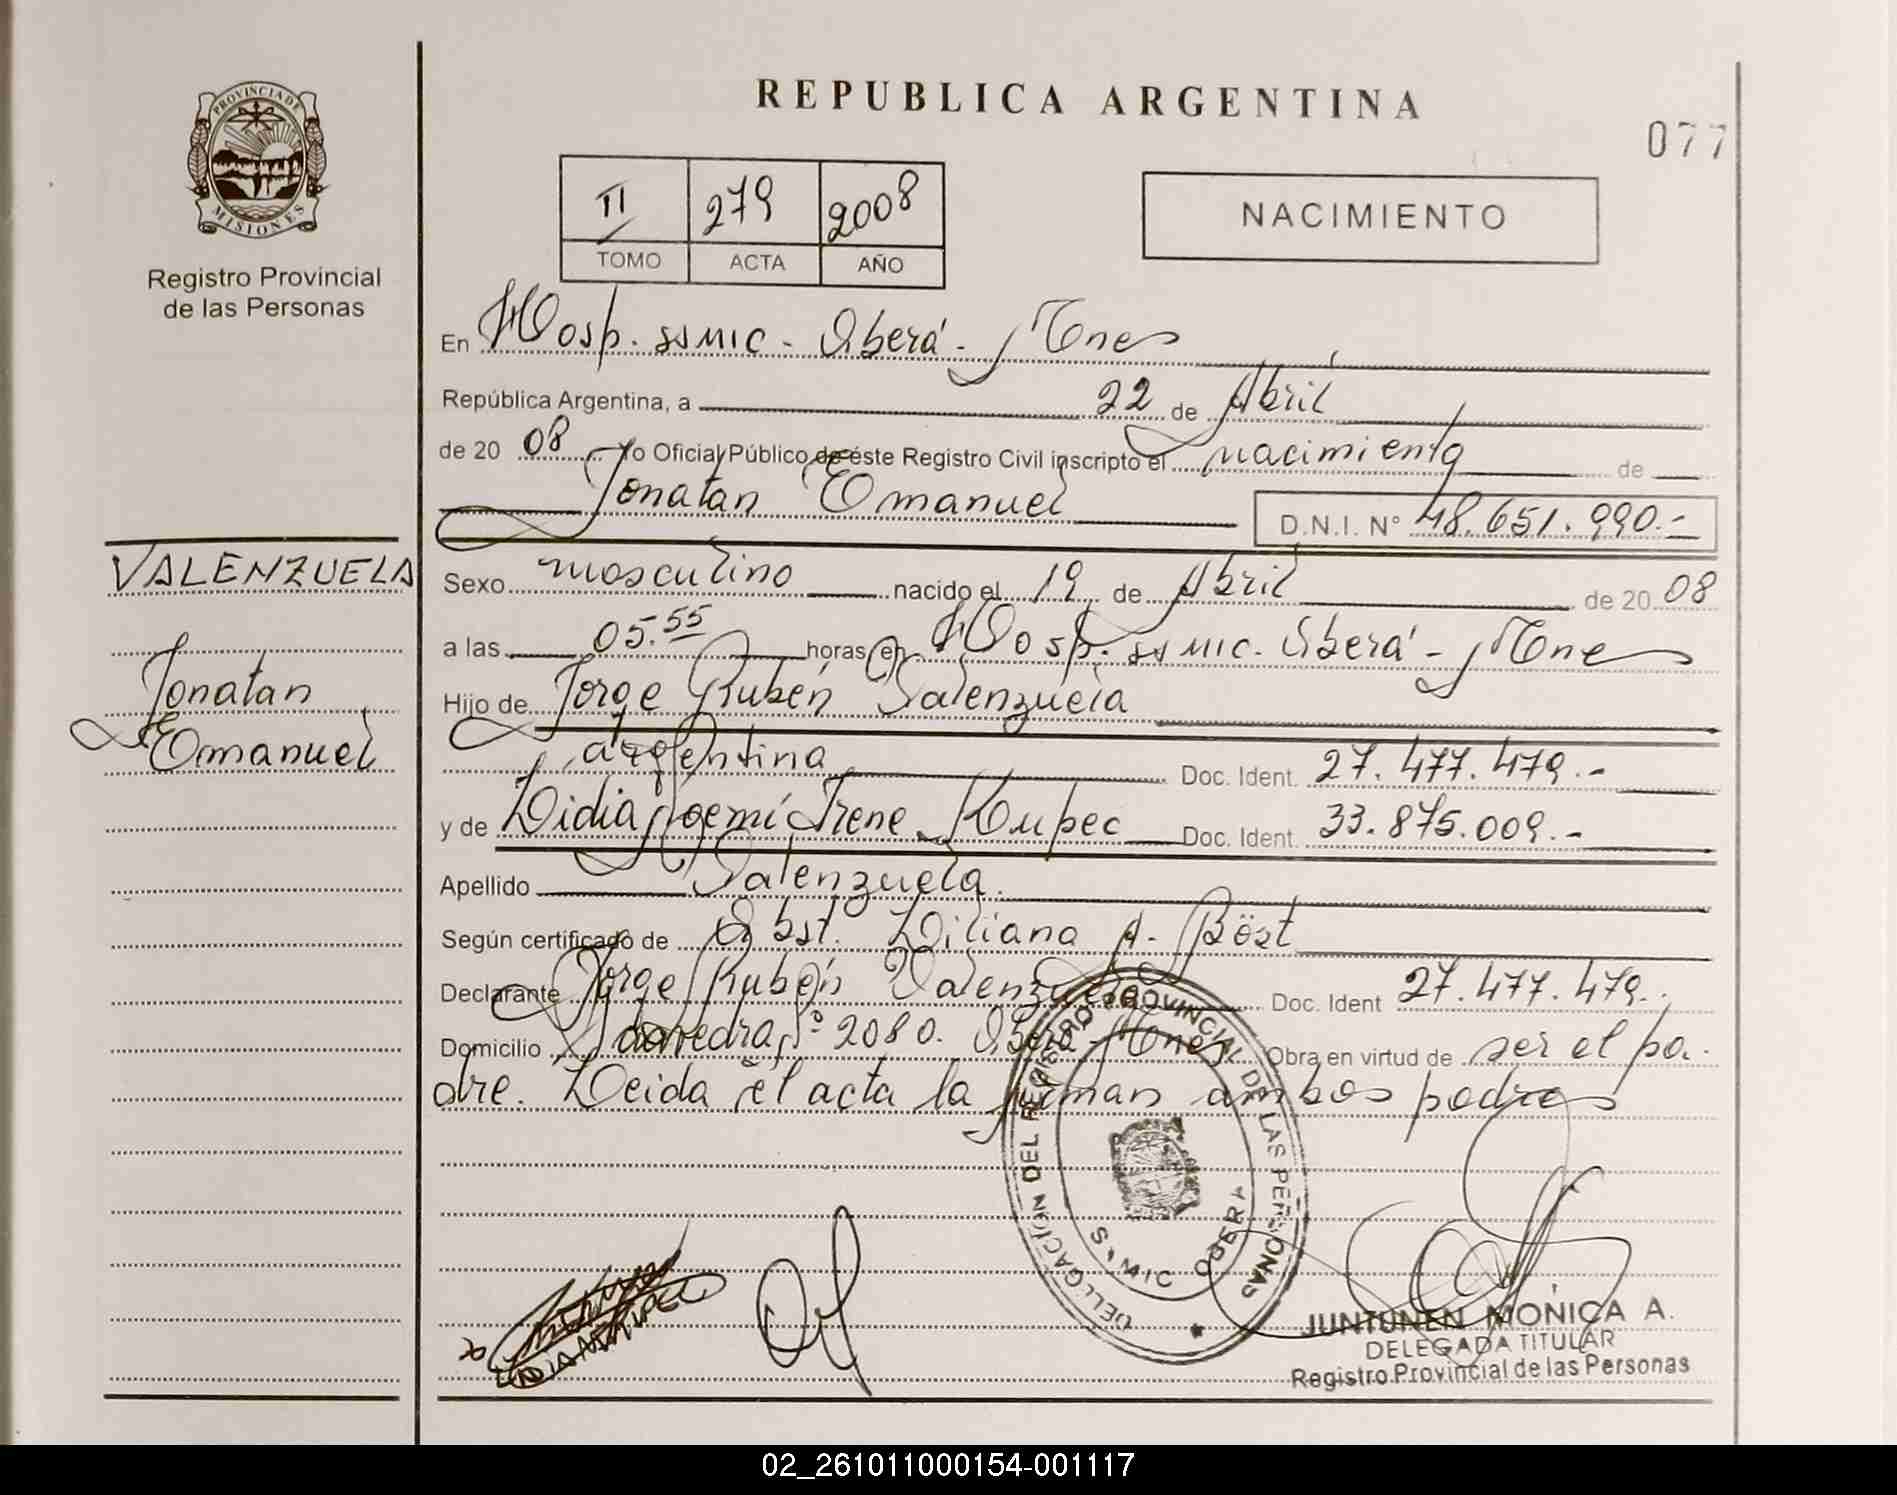 REPUBLICA ARGENTINA
077
PROVINCIA DE
MISIONES
Registro Provincial
de las Personas
II 279 2008
TOMO ACTA AÑO
NACIMIENTO
En Hosp. ssmic - Oberá - Mnes
República Argentina, a 22 de Abril
de 20 08 Yo Oficial Público de éste Registro Civil inscripto el nacimiento de
Jonatan Emanuel D.N.I. N° 48.651.990.-
VALENZUELA
Jonatan
Emanuel
Sexo masculino nacido el 19 de Abril de 20 08
a las 05.55 horas en Hosp. ssmic. Oberá - Mnes
Hijo de Jorge Rubén Valenzuela
argentina Doc. Ident. 27.477.479.-
y de Lidia Noemí Irene Kupec Doc. Ident. 33.875.009.-
Apellido Valenzuela
Según certificado de Obst. Liliana A. Böst
Declarante Jorge Rubén Valenzuela Doc. Ident 27.477.479.
Domicilio Saavedra Nº 2080. Oberá - Mnes Obra en virtud de ser el pa-
dre. Leida el acta la firman ambos padres
DELEGACIÓN DEL REGISTRO PROVINCIAL DE LAS PERSONAS
SAMIC OBERA
JUNTUNEN MONICA A.
DELEGADA TITULAR
Registro Provincial de las Personas
02_261011000154-001117